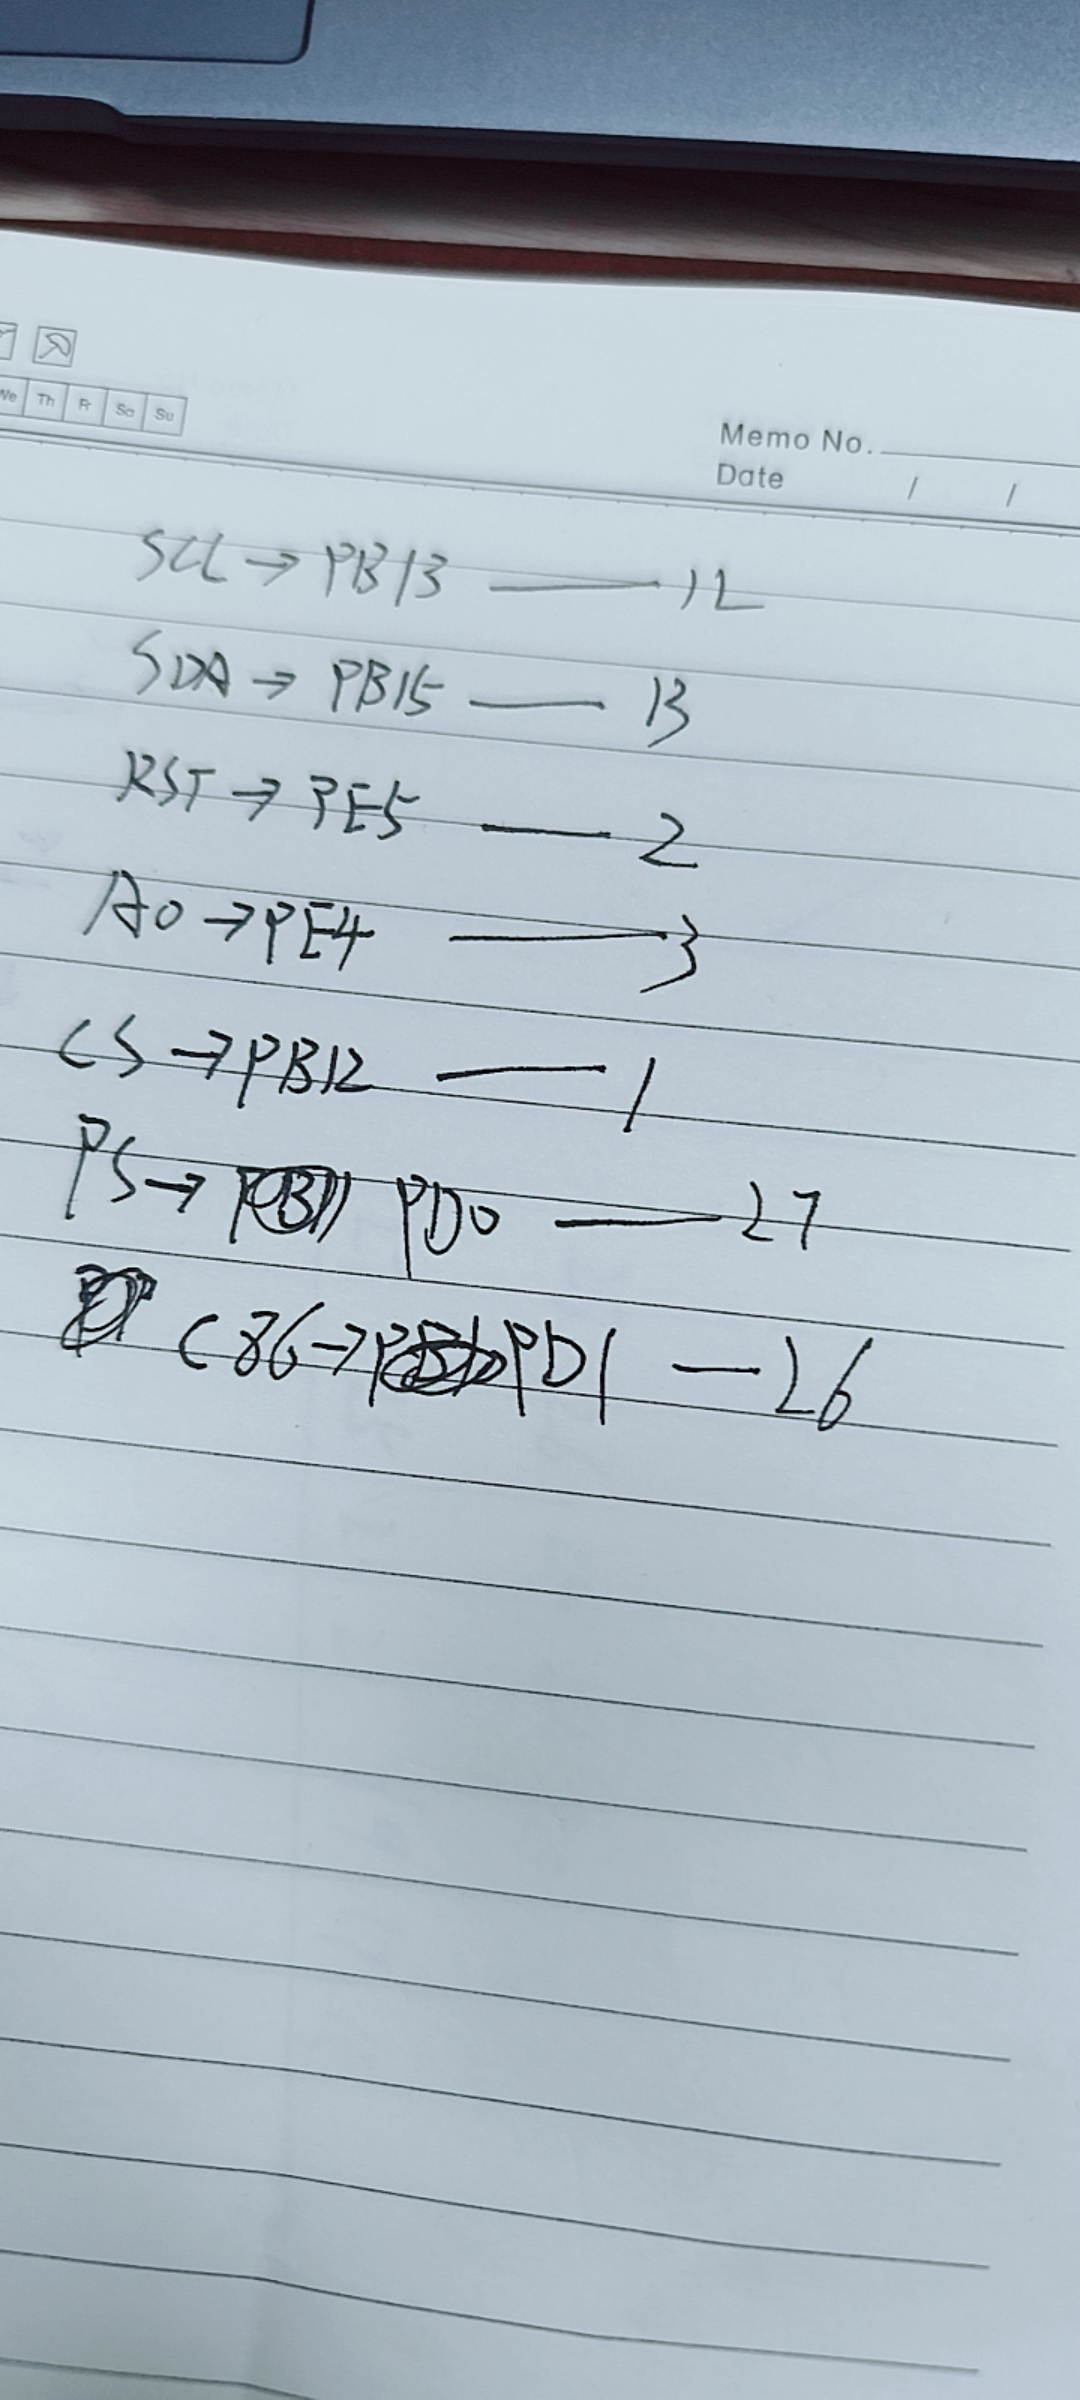 We Th Fr Sa Su
Memo No.
Date / /
SCL → PB13 — 12
SDA → PB15 — 13
RST → PE5 — 2
A0 → PE4 — 3
CS → PB12 — 1
PS → PD0 — 27
C86 → PD1 — 26